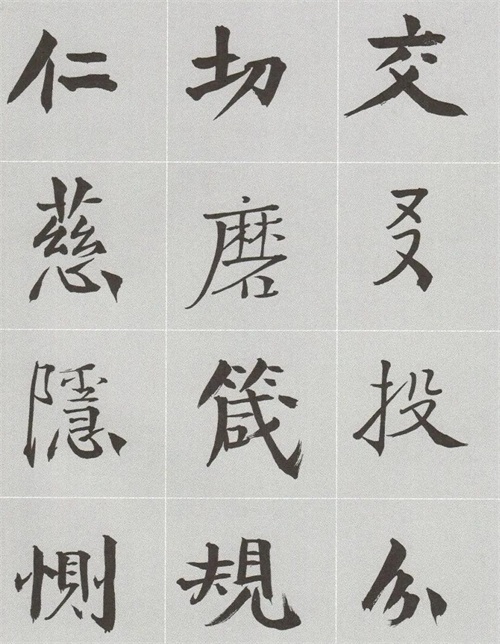 交㕛投分
切磨箴規
仁慈隱惻